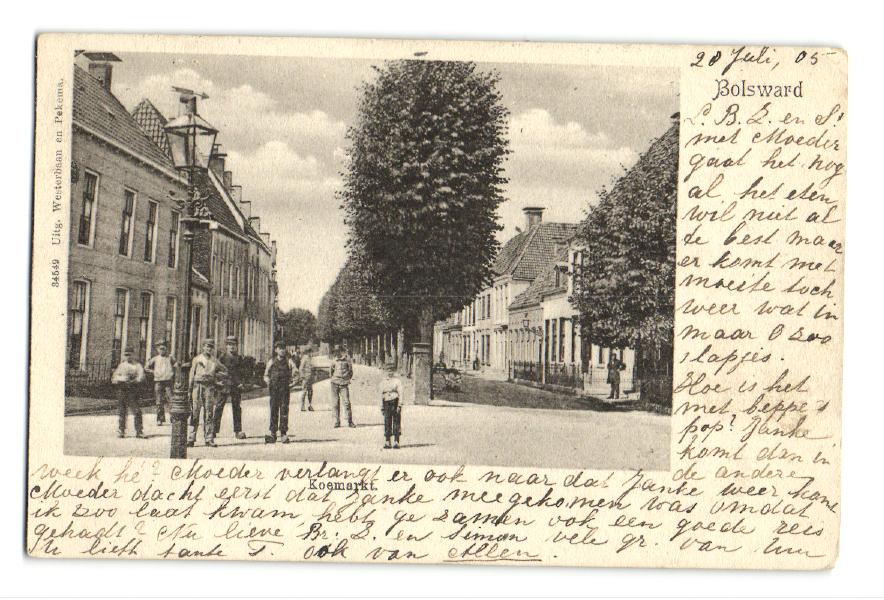 28 Juli, 05
Bolsward
L. B. Z. en S!
met Moeder
gaat het nog
al, het eten
wil niet al
te best maar
er komt met
moeite toch
weer wat in
maar O zoo
slapjes.
Hoe is het
met beppe's
pop? Janke
komt dan in
de andere
week hé? Moeder verlangt er ook naar dat Janke weer komt
Moeder dacht eerst dat Janke meegekomen was omdat
ik zoo laat kwam, hebt ge zamen ook een goede reis
gehad? Nu lieve Br. Z. en Simon vele gr. van Uw
U liefh tante T. ook van Allen.
Koemarkt.
34549 Uitg. Westerbaan en Pekema.